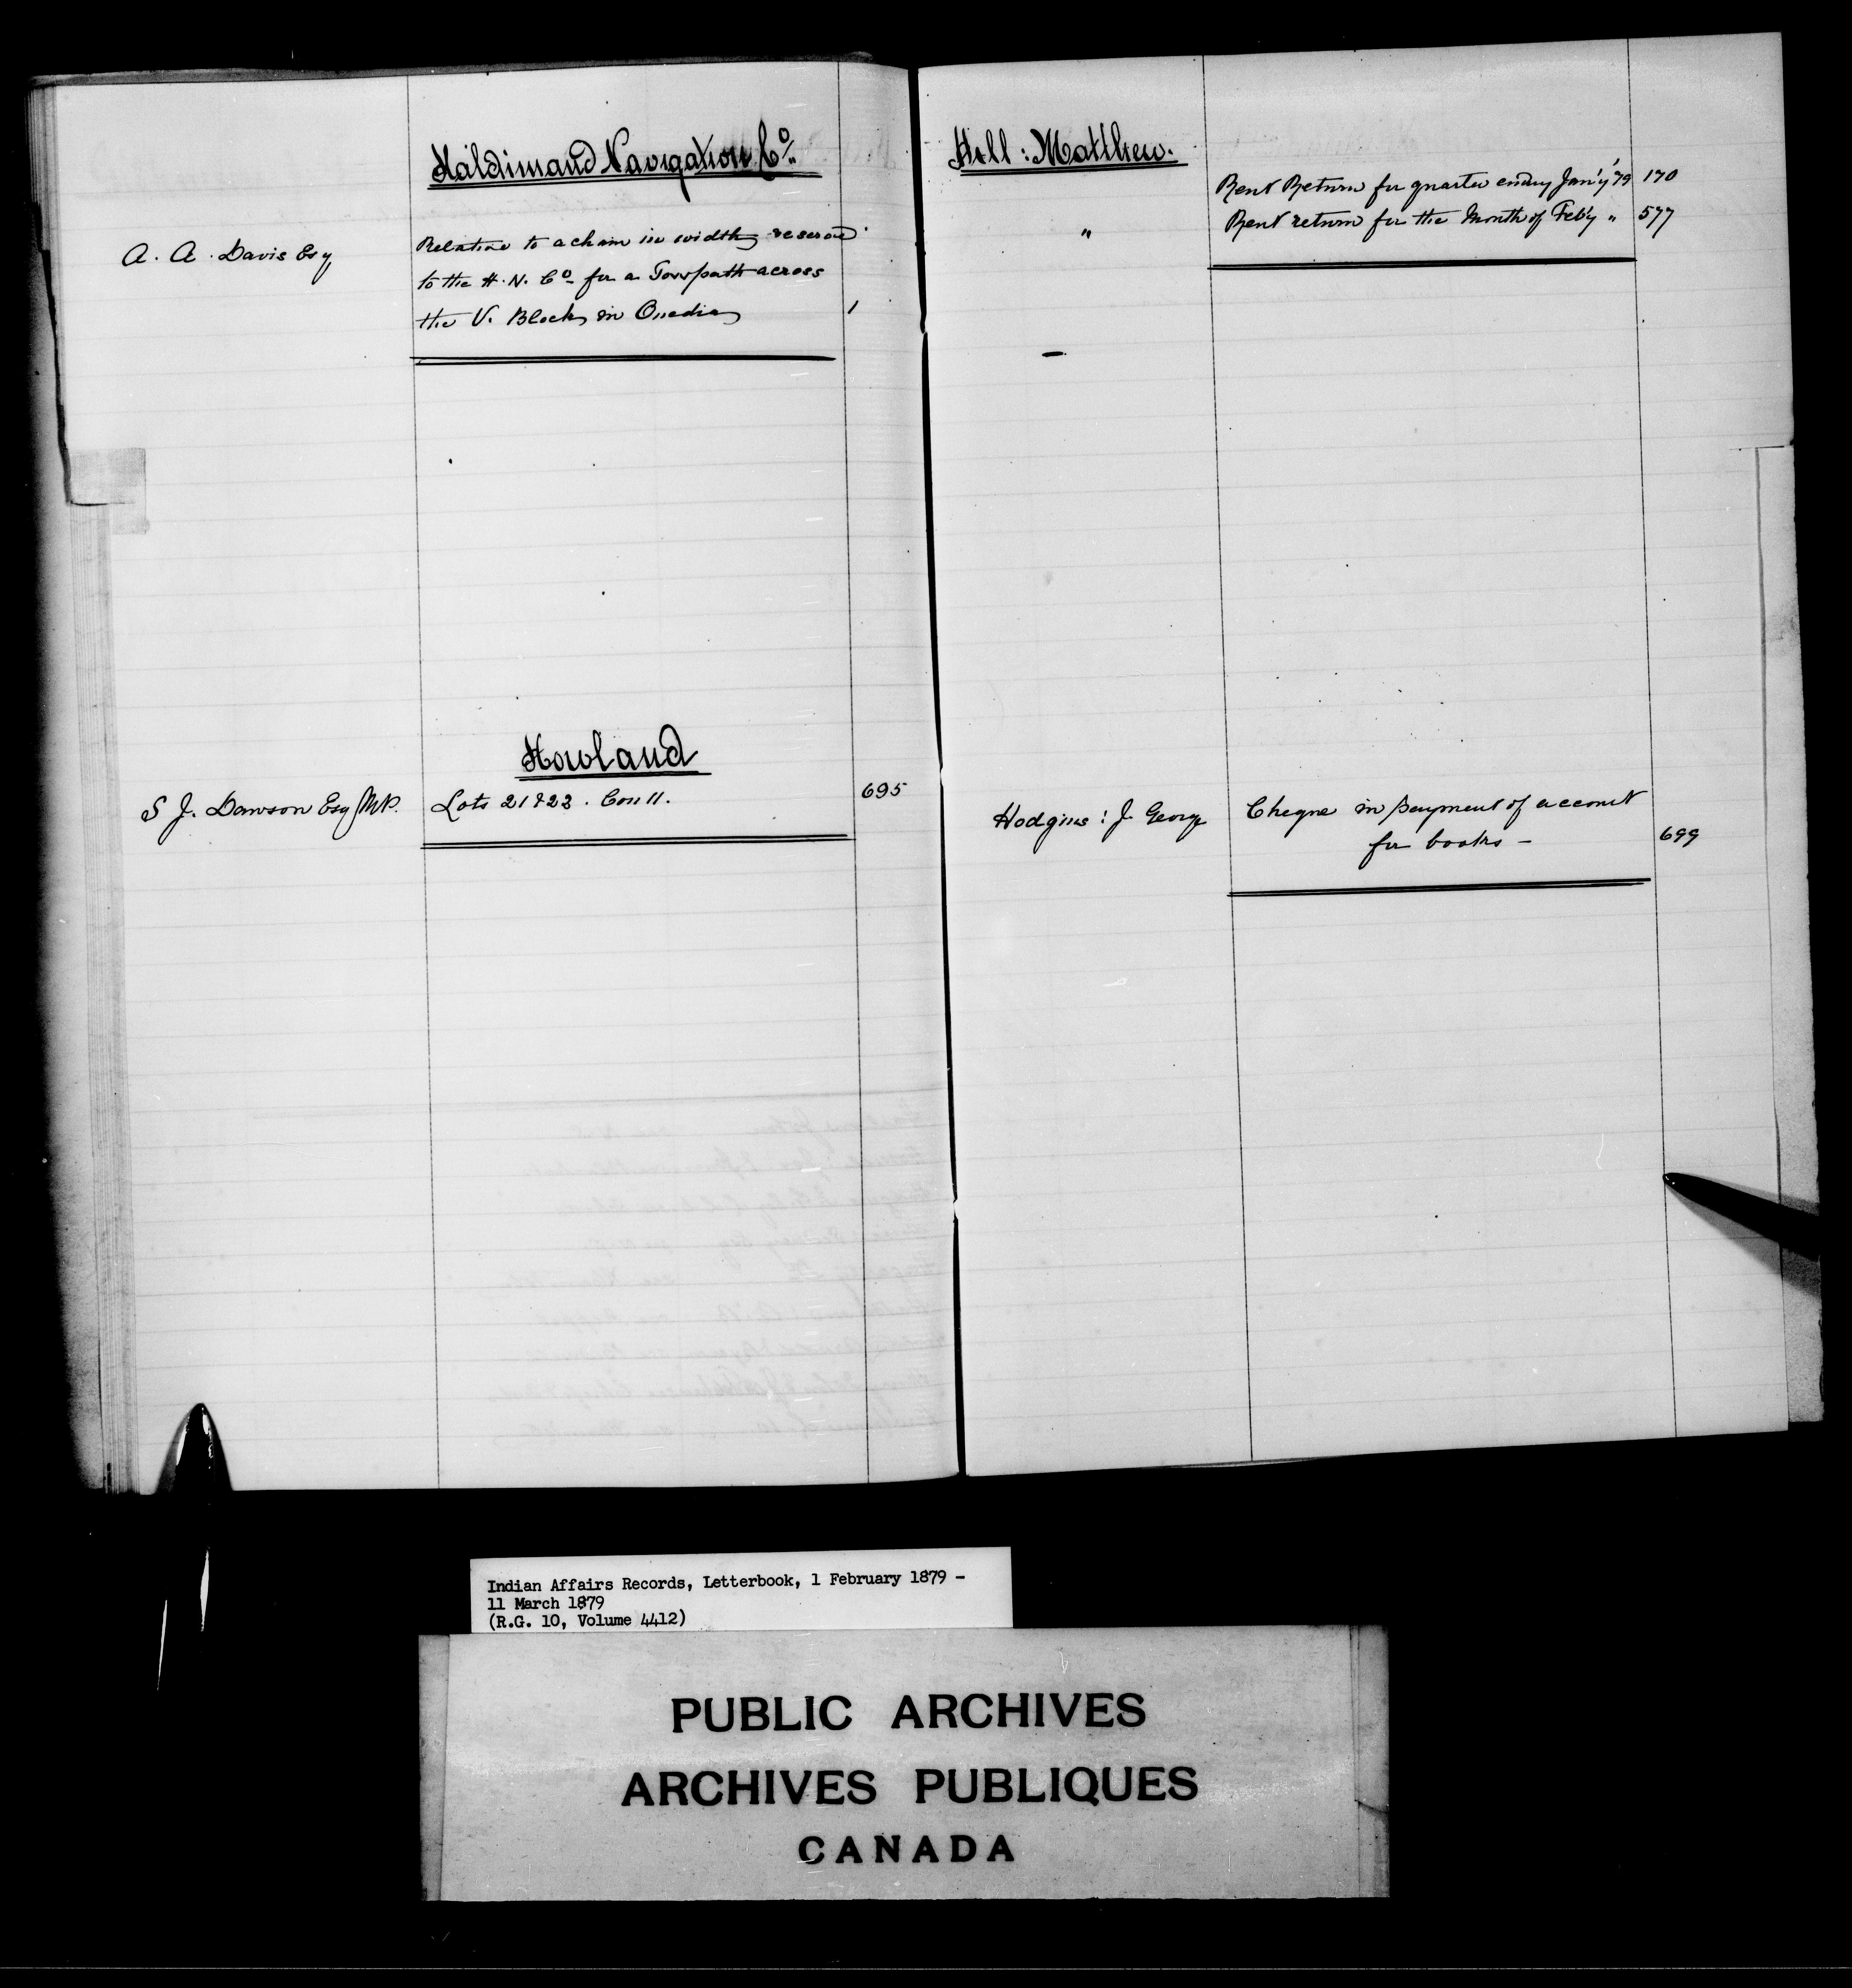 Haldimand Navigation Co.
A. A. Davis Esq
Relative to a chain in width reserved
to the H. N. Co. for a Towpath across
the V. Block in Onedia
1
Howland
S J. Dawson Esq MP.
Lots 21 & 22 . Con 11.
695
Hill : Matthew.
Rent Return for quarter ending Jan'y '79
170
"
Rent return for the Month of Feb'y "
577
Hodgins : J. George
Cheque in payment of account
for books –
699
Indian Affairs Records, Letterbook, 1 February 1879 -
11 March 1879
(R.G. 10, Volume 4412)
PUBLIC ARCHIVES
ARCHIVES PUBLIQUES
CANADA